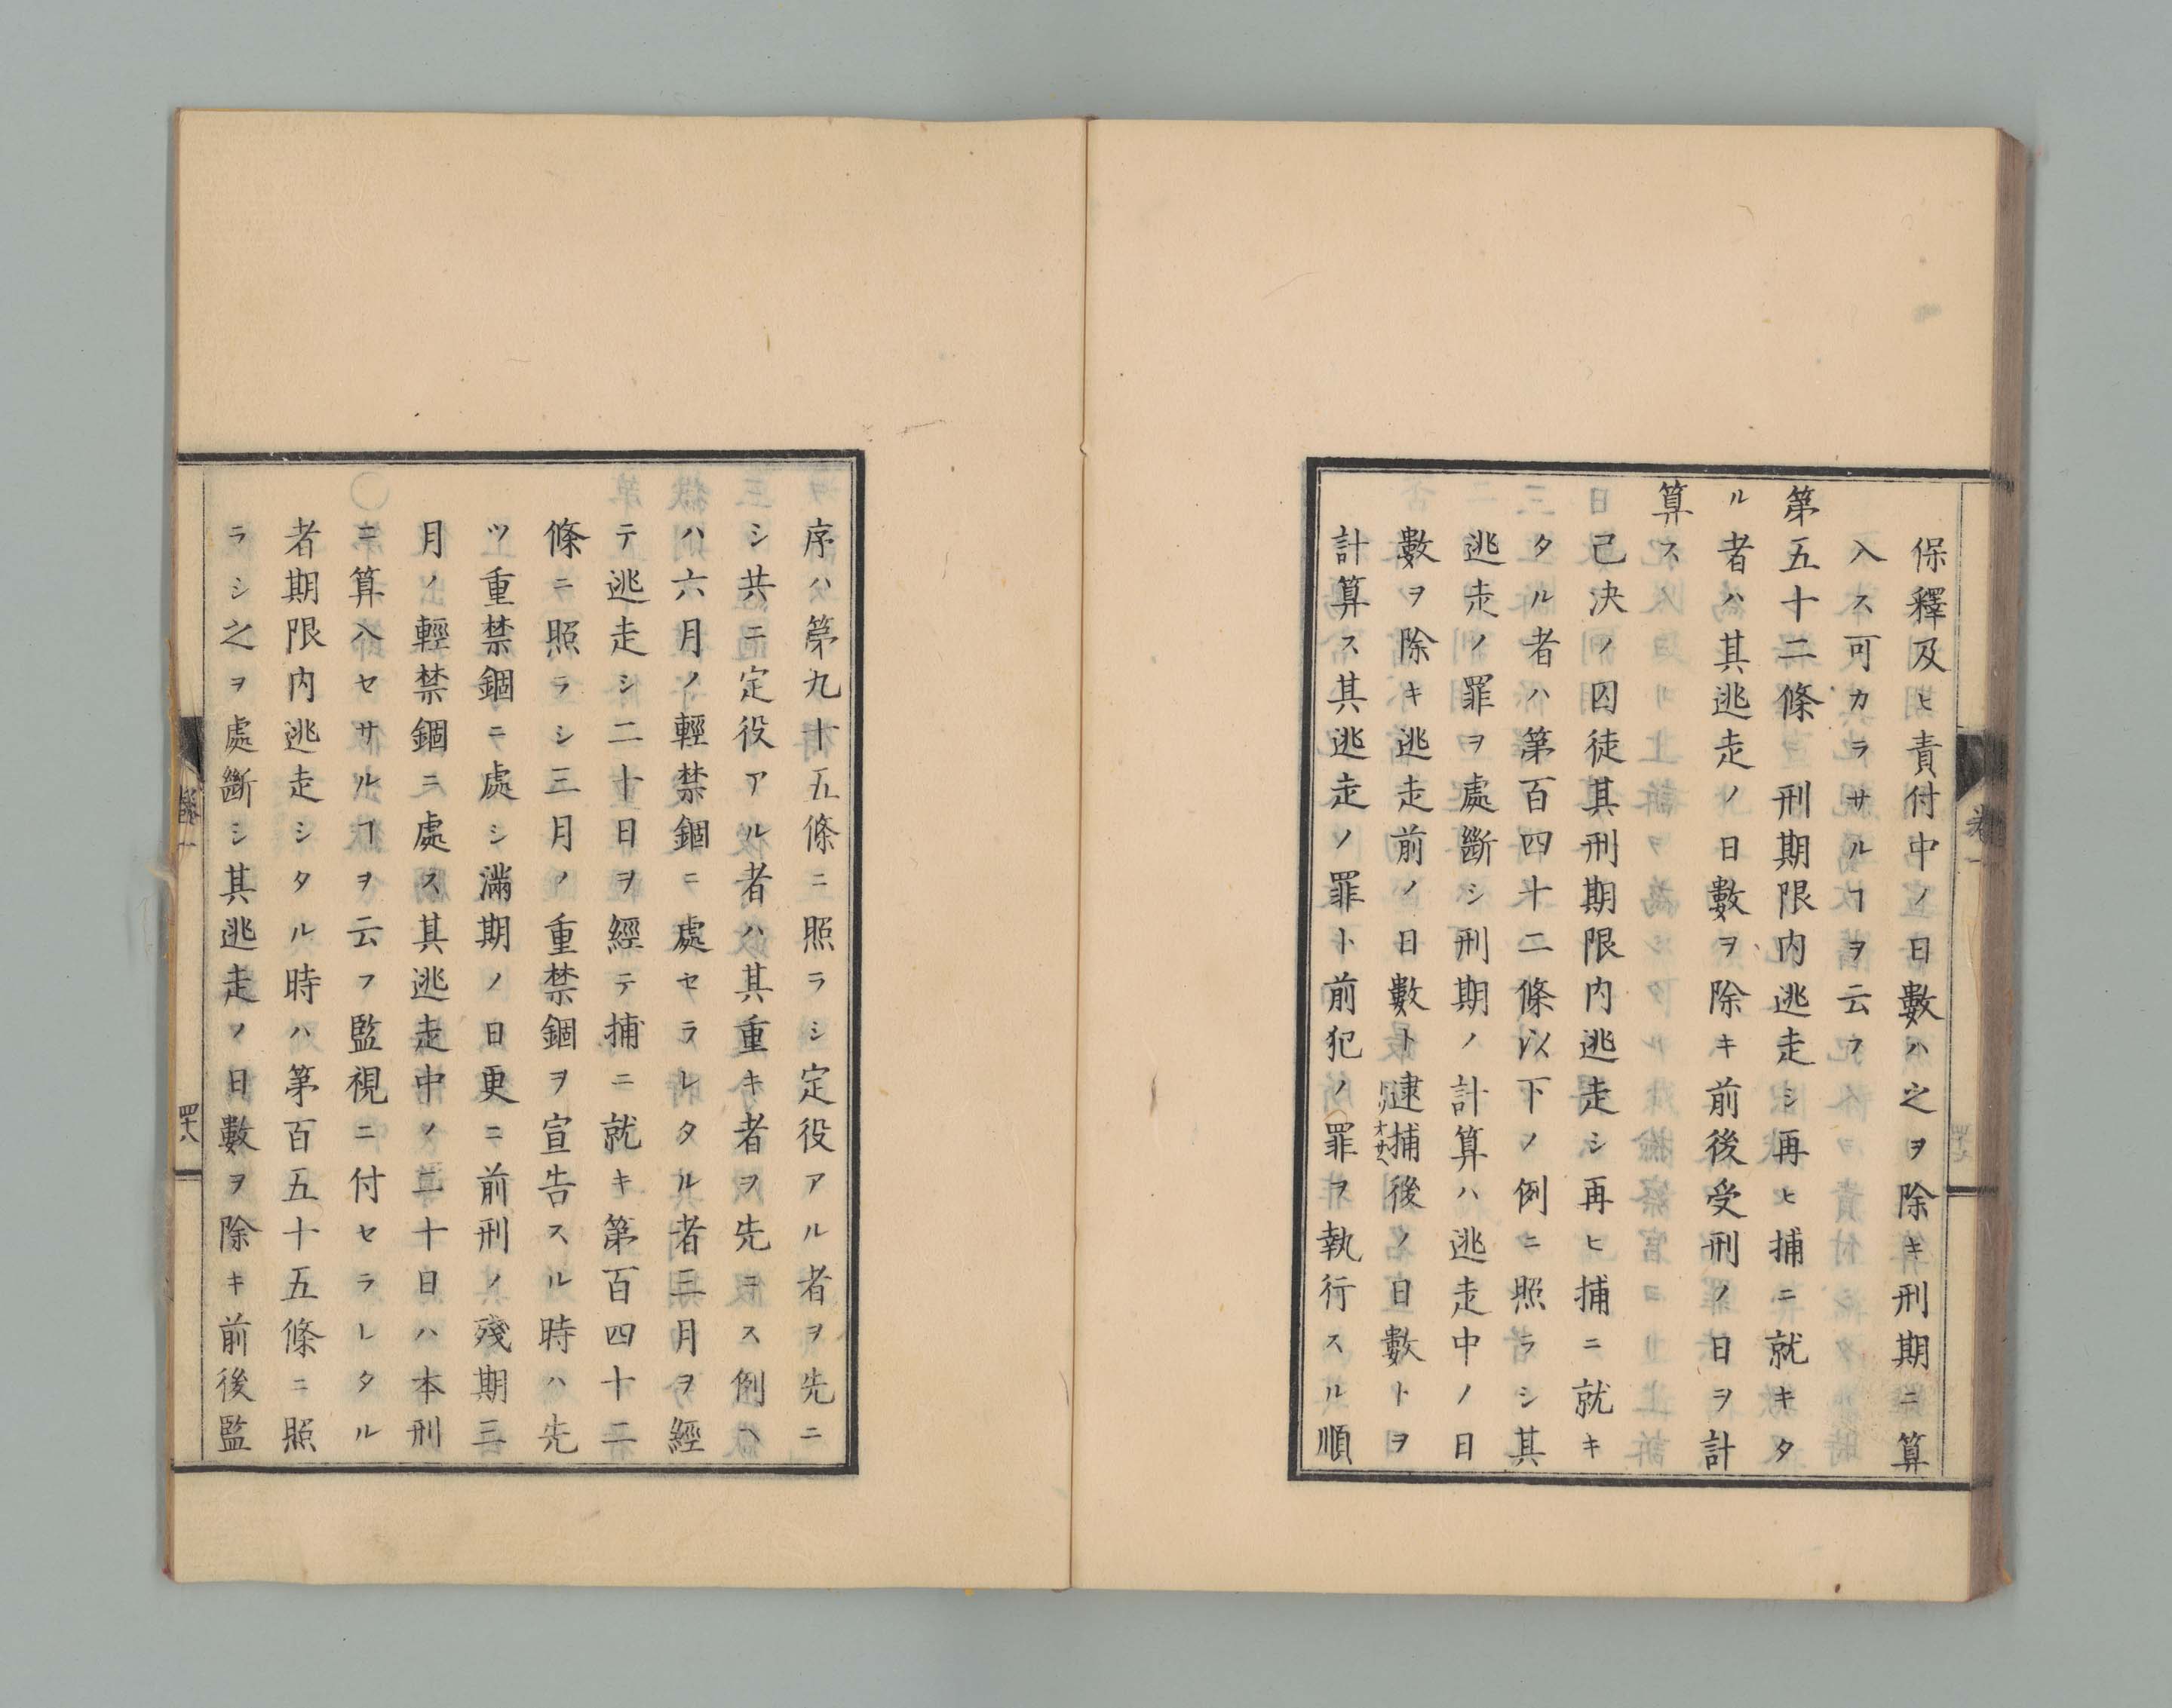 保釋及ヒ責付中ノ日數ハ之ヲ除キ刑期ニ算
入ス可カラサルヿヲ云フ
第五十二條 刑期限內逃走シ再ヒ捕ニ就キタ
ル者ハ其逃走ノ日數ヲ除キ前後受刑ノ日ヲ計
算ス
已決ノ囚徒其刑期限內逃走シ再ヒ捕ニ就キ
タル者ハ第百四十二條以下ノ例ニ照ラシ其
逃走ノ罪ヲ處斷シ刑期ノ計算ハ逃走中ノ日
數ヲ除キ逃走前ノ日數ト逮捕後ノ日數トヲ
計算ス其逃走ノ罪ト前犯ノ罪ヲ執行スル順
序ハ第九十五條ニ照ラシ定役アル者ヲ先ニ
シ共ニ定役アル者ハ其重キ者ヲ先ニス例ヘ
ハ六月ノ輕禁錮ニ處セラレタル者三月ヲ經
テ逃走シ二十日ヲ經テ捕ニ就キ第百四十二
條ニ照ラシ三月ノ重禁錮ヲ宣告スル時ハ先
ツ重禁錮ニ處シ滿期ノ日更ニ前刑ノ殘期三
月ノ輕禁錮ニ處ス其逃走中ノ二十日ハ本刑
ニ算入セサルヿヲ云フ監視ニ付セラレタル
者期限內逃走シタル時ハ第百五十五條ニ照
ラシ之ヲ處斷シ其逃走ノ日數ヲ除キ前後監
卷一
四十八